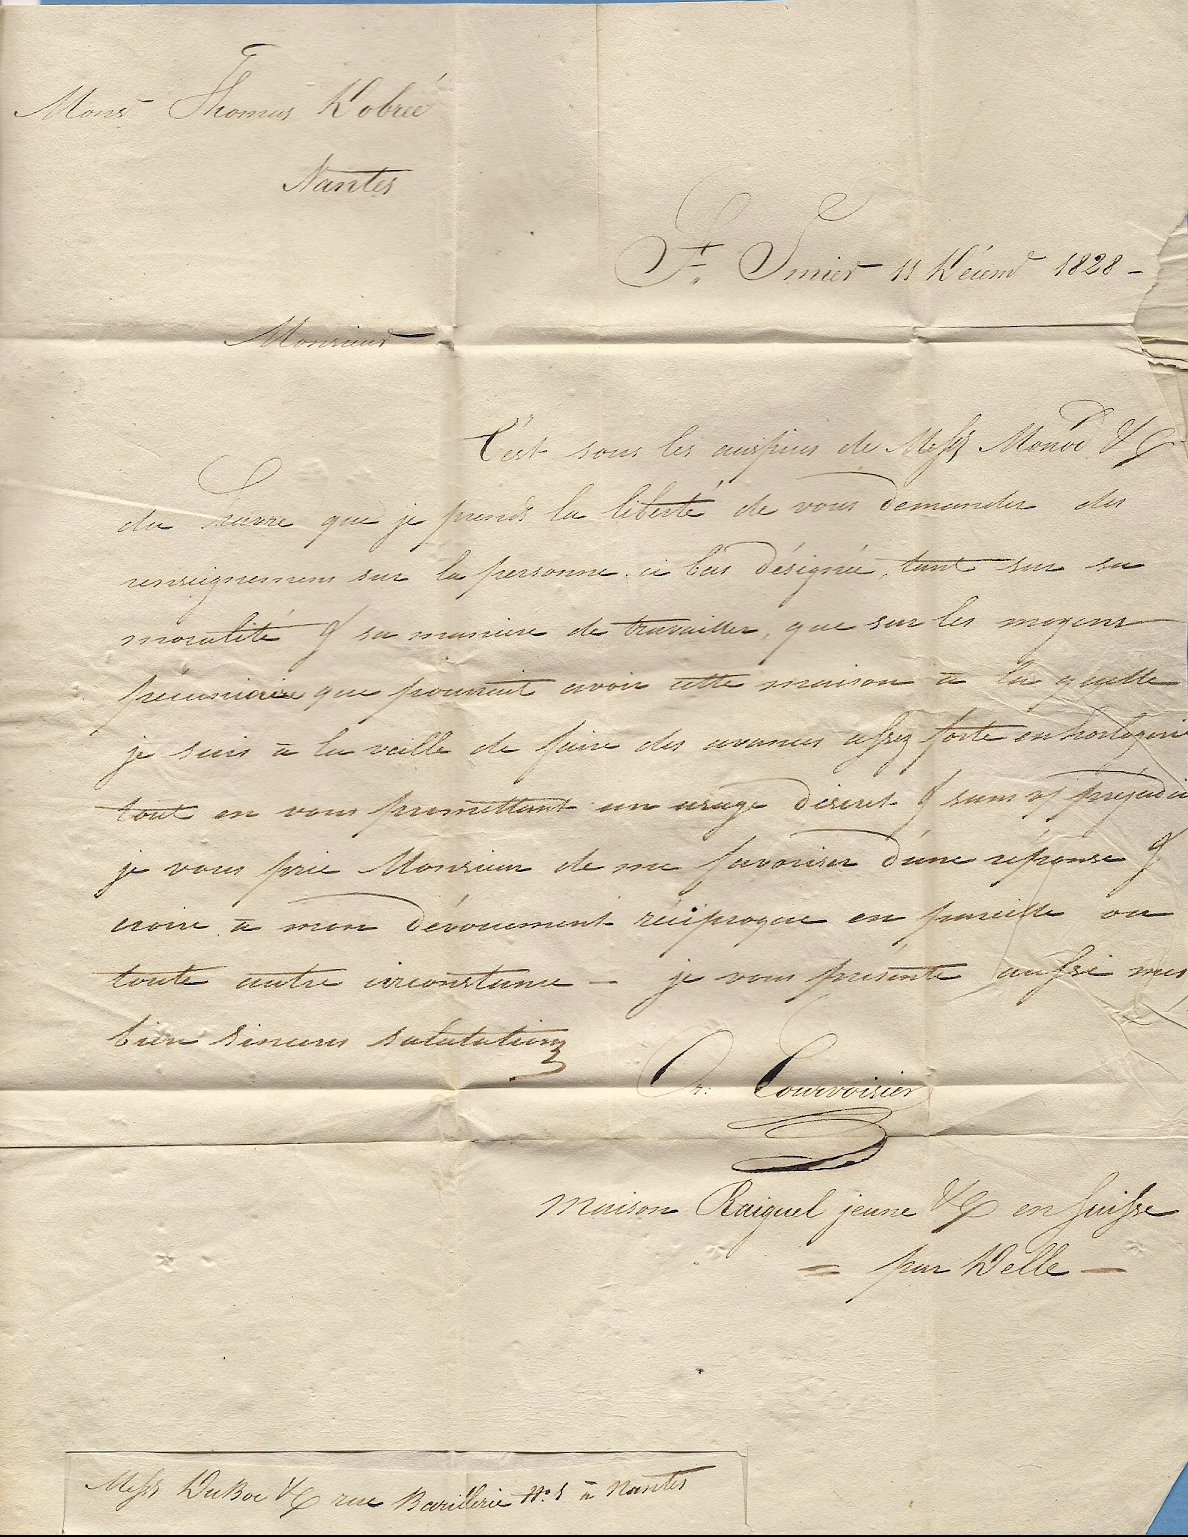 Monsr Thomas Dobrée
Nantes
St. Imier 11 Décemb 1828 -
Monsieur
C'est sous les auspices de Messrs Monod & C
du Havre que je prends la liberté de vous demander des
renseignemens sur la personne ci bas désignée, tant sur sa
moralité & sa maniere de travailler, que sur les moyens
pécuniaire que pourrait avoir cette maison à la quelle
je suis à la veille de faire des avances assez forte en horlogerie
tout en vous promettant un usage discret & sans préjudice
je vous prie Monsieur de me favoriser d'une réponse &
croire à mon dévouement réciproque en pareille ou
toute autre circonstance — je vous présente aussi mes
bien sinceres salutations
Courvoisier
Maison Raiguel jeune & C en Suisse
= par Delle —
Messrs DuBoc & C rue Barillerie No. 5 à Nantes